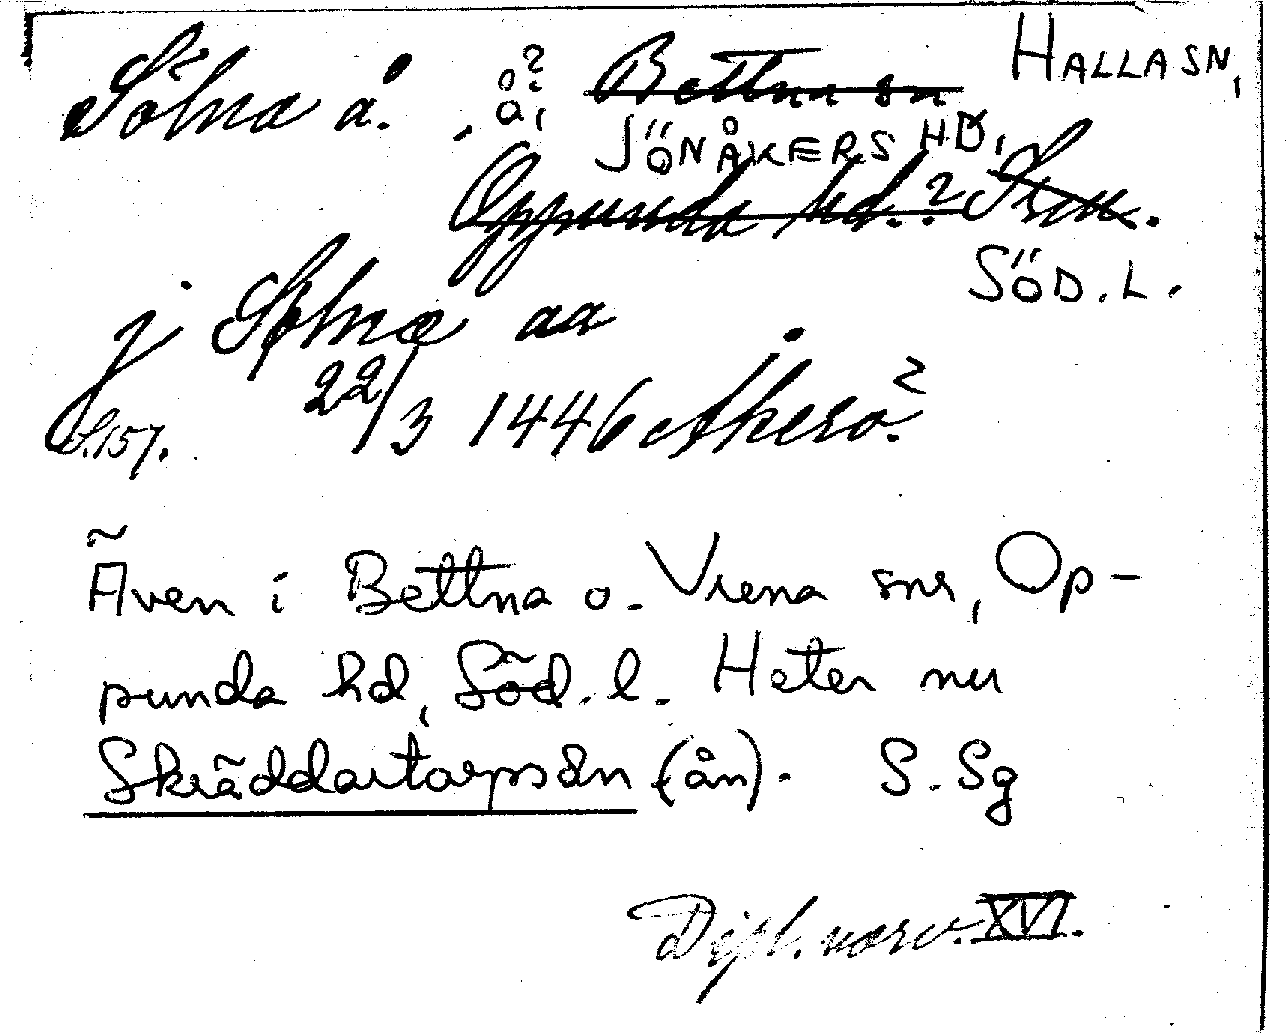 Sölna å. , å? ~~Bettna sn~~ HALLA SN,
JÖNÅKERS HD,
~~Oppunda hd.? Srm.~~
SÖD. L.
j Sølnæ aa
S. 157. 22/3 1446 Åkerö?
Även i Bettna o. Vrena snr, Op-
punda hd, Söd. l. Heter nu
Skräddartorpsån (ån). S. Sg
Dipl. norv. XVI.